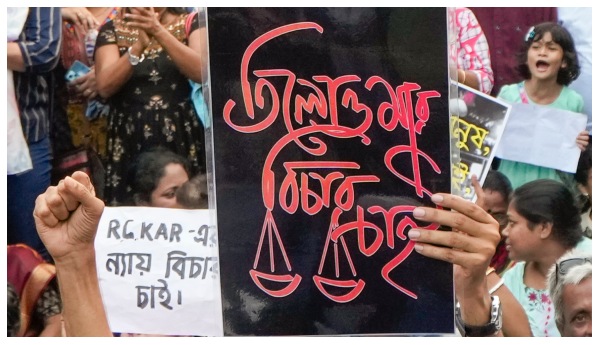 তিলোত্তমার
বিচার
চাই
RG.KAR-এর
ন্যায় বিচার
চাই।